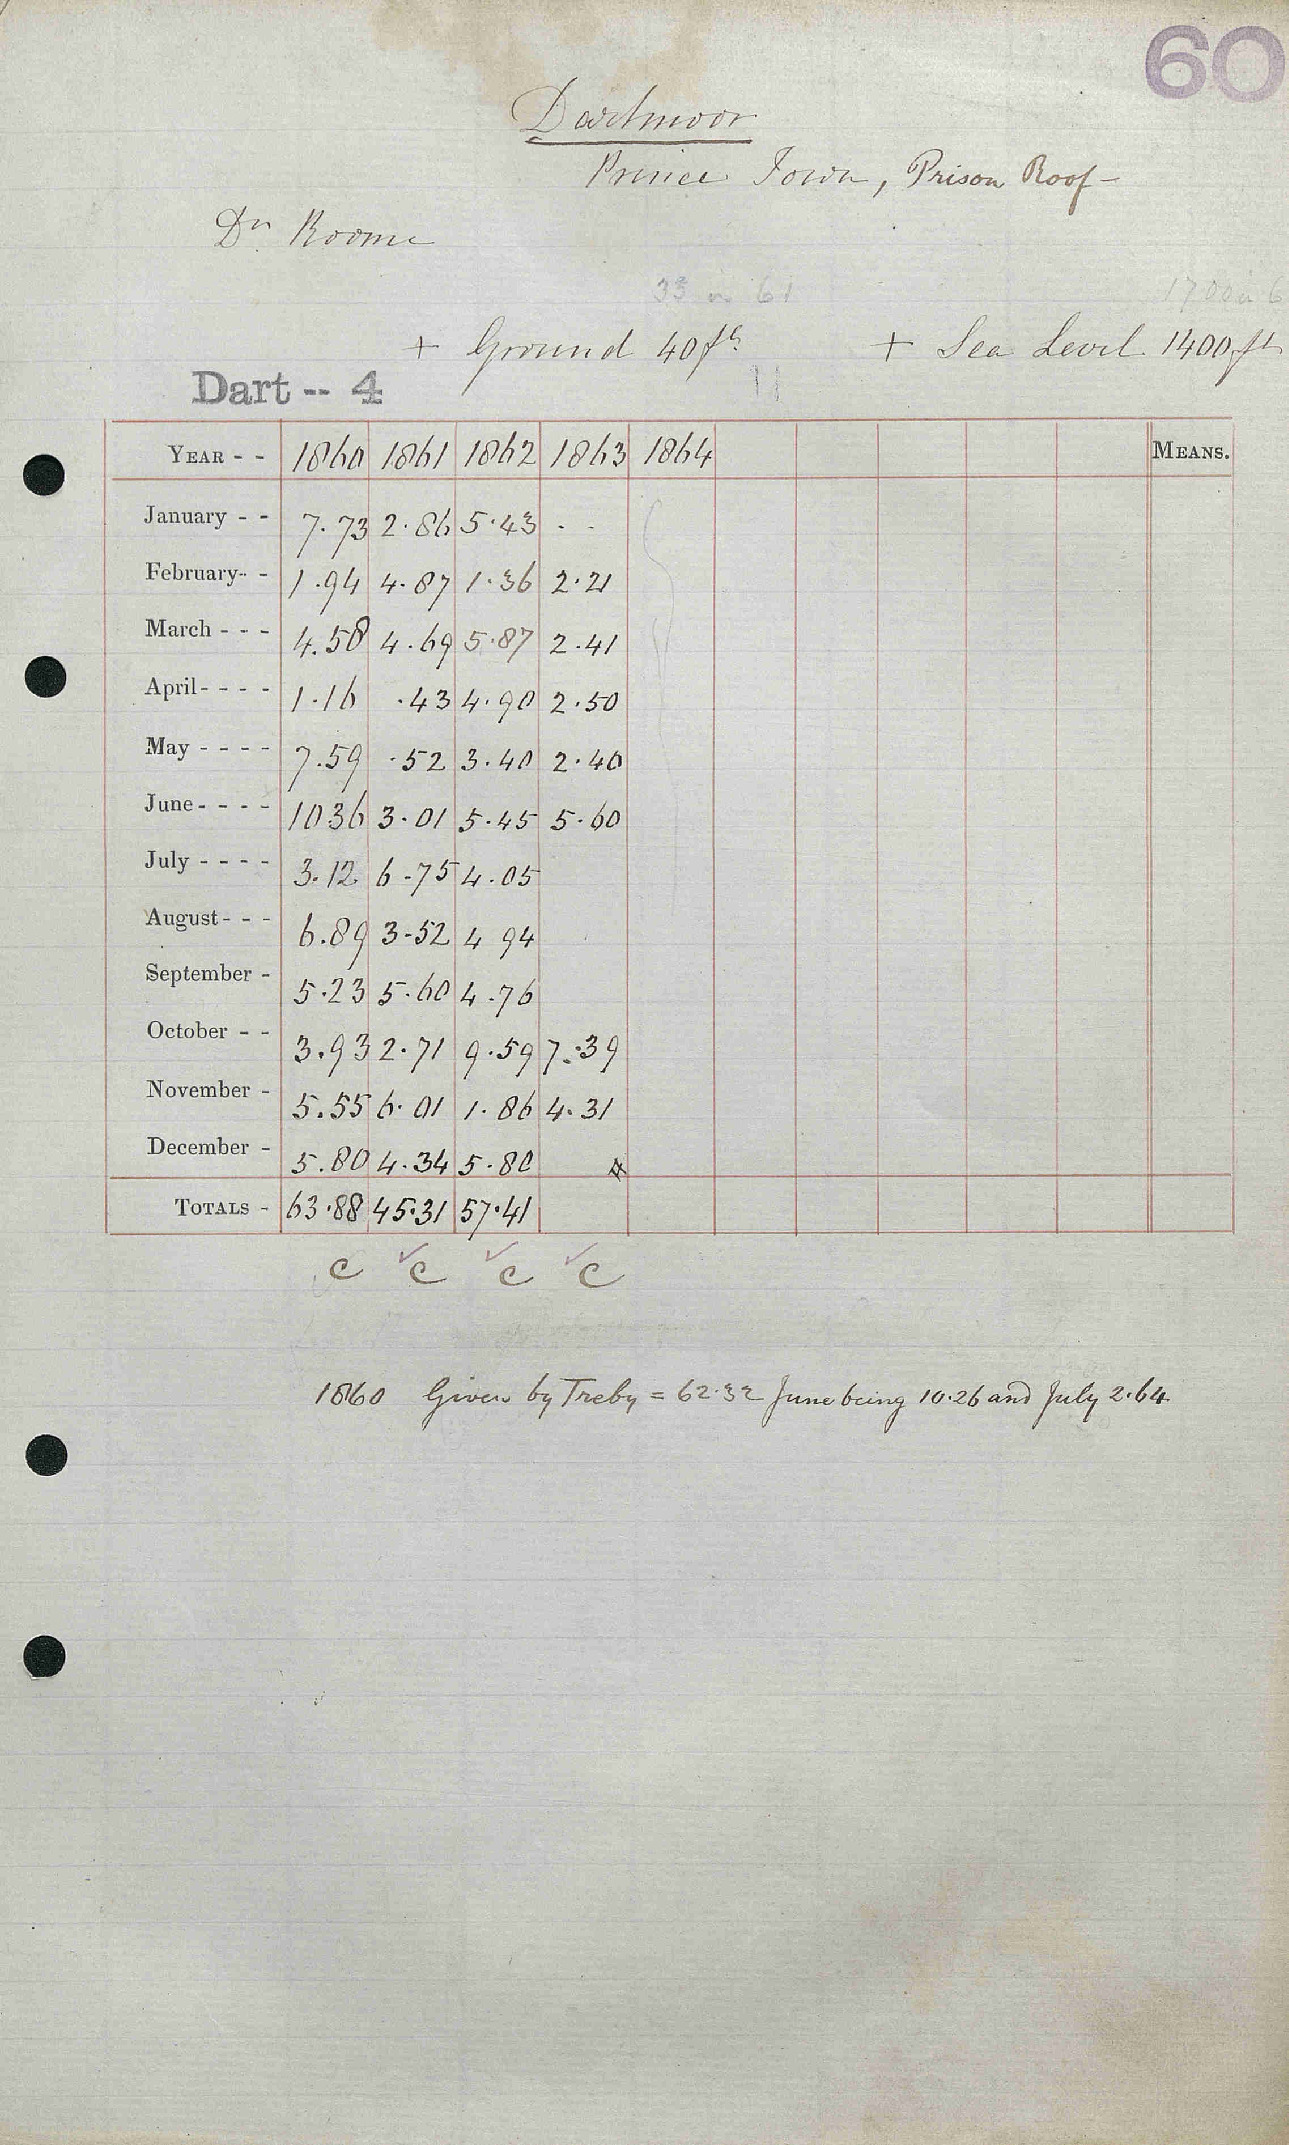 60
Dartmoor
Prince Town, Prison Roof -
Dr Roome
33 in 61
+ Ground 40 ft. + Sea Level 1400 ft
Dart -- 4
YEAR - - 1860 1861 1862 1863 1864 MEANS.
January - - 7.73 2.86 5.43 . .
February- - 1.94 4.87 1.36 2.21
March - - - 4.58 4.69 5.87 2.41
April- - - - 1.16 .43 4.90 2.50
May - - - - 7.59 .52 3.40 2.40
June- - - - 1036 3.01 5.45 5.60
July - - - - 3.12 6.75 4.05
August- - - 6.89 3.52 4 94
September - 5.23 5.60 4.76
October - - 3.93 2.71 9.59 7.39
November - 5.55 6.01 1.86 4.31
December - 5.80 4.34 5.80
TOTALS - 63.88 45.31 57.41
c c c c
1860 Given by Treby = 62.32 June being 10.26 and July 2.64